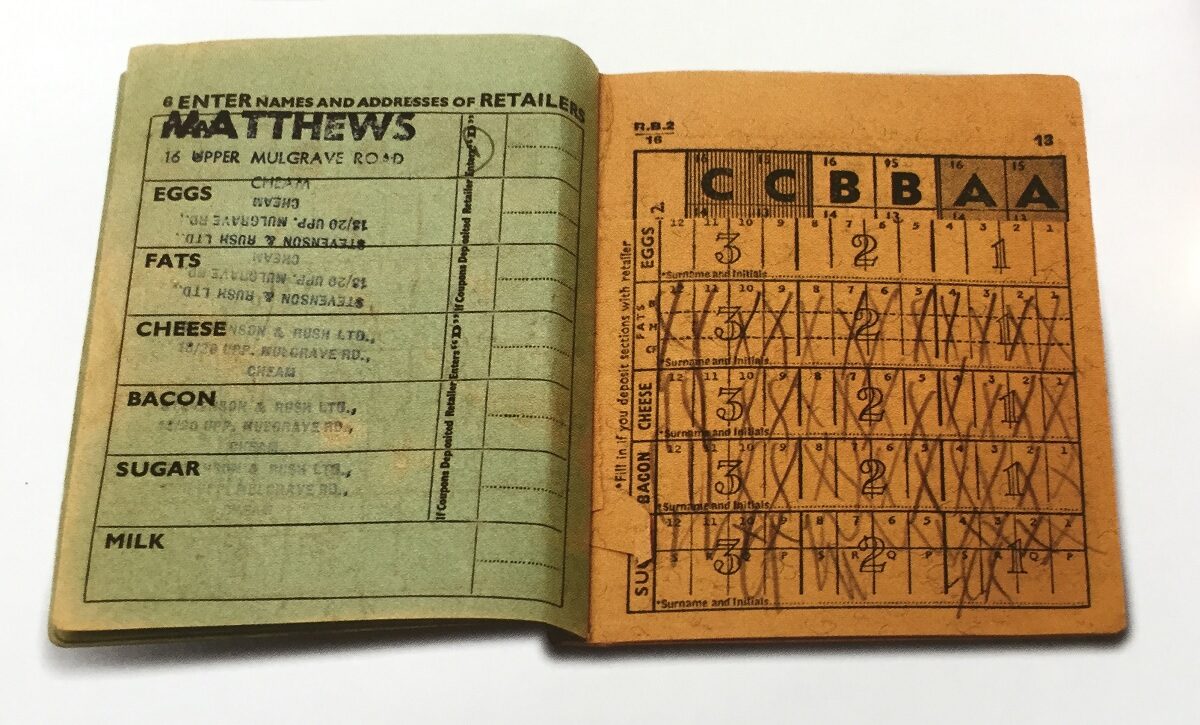 6 ENTER NAMES AND ADDRESSES OF RETAILERS
MATTHEWS
16 UPPER MULGRAVE ROAD
CHEAM
EGGS
STEVENSON & RUSH LTD.,
18/20 UPP. MULGRAVE RD.,
CHEAM
FATS
STEVENSON & RUSH LTD.,
18/20 UPP. MULGRAVE RD
CHEAM
CHEESE
NSON & RUSH LTD.,
18/20 UPP. MULGRAVE RD.,
CHEAM
BACON
STEVENSON & RUSH LTD.,
18/20 UPP. MULGRAVE RD.,
CHEAM
SUGAR
NSON & RUSH LTD.,
MULGRAVE RD.,
CHEAM
MILK
If Coupons Deposited Retailer Enters "D"
If Coupons Deposited Retailer Enters "D"
R.B.2
16
13
*Fill in if you deposit sections with retailer
16 15 16 15 16 15
C C B B A A
14 13 14 13 14 13
EGGS
12 11 10 9 8 7 6 5 4 3 2 1
3 2 1
*Surname and Initials
FATS
12 11 10 9 8 7 6 5 4 3 2 1
3 2 1
*Surname and Initials
CHEESE
12 11 10 9 8 7 6 5 4 3 2 1
3 2 1
*Surname and Initials
BACON
12 11 10 9 8 7 6 5 4 3 2 1
3 2 1
*Surname and Initials
SU
12 11 10 9 8 7 6 5 4 3 2 1
3 2 1
S R Q P S R Q P S R Q P
*Surname and Initials